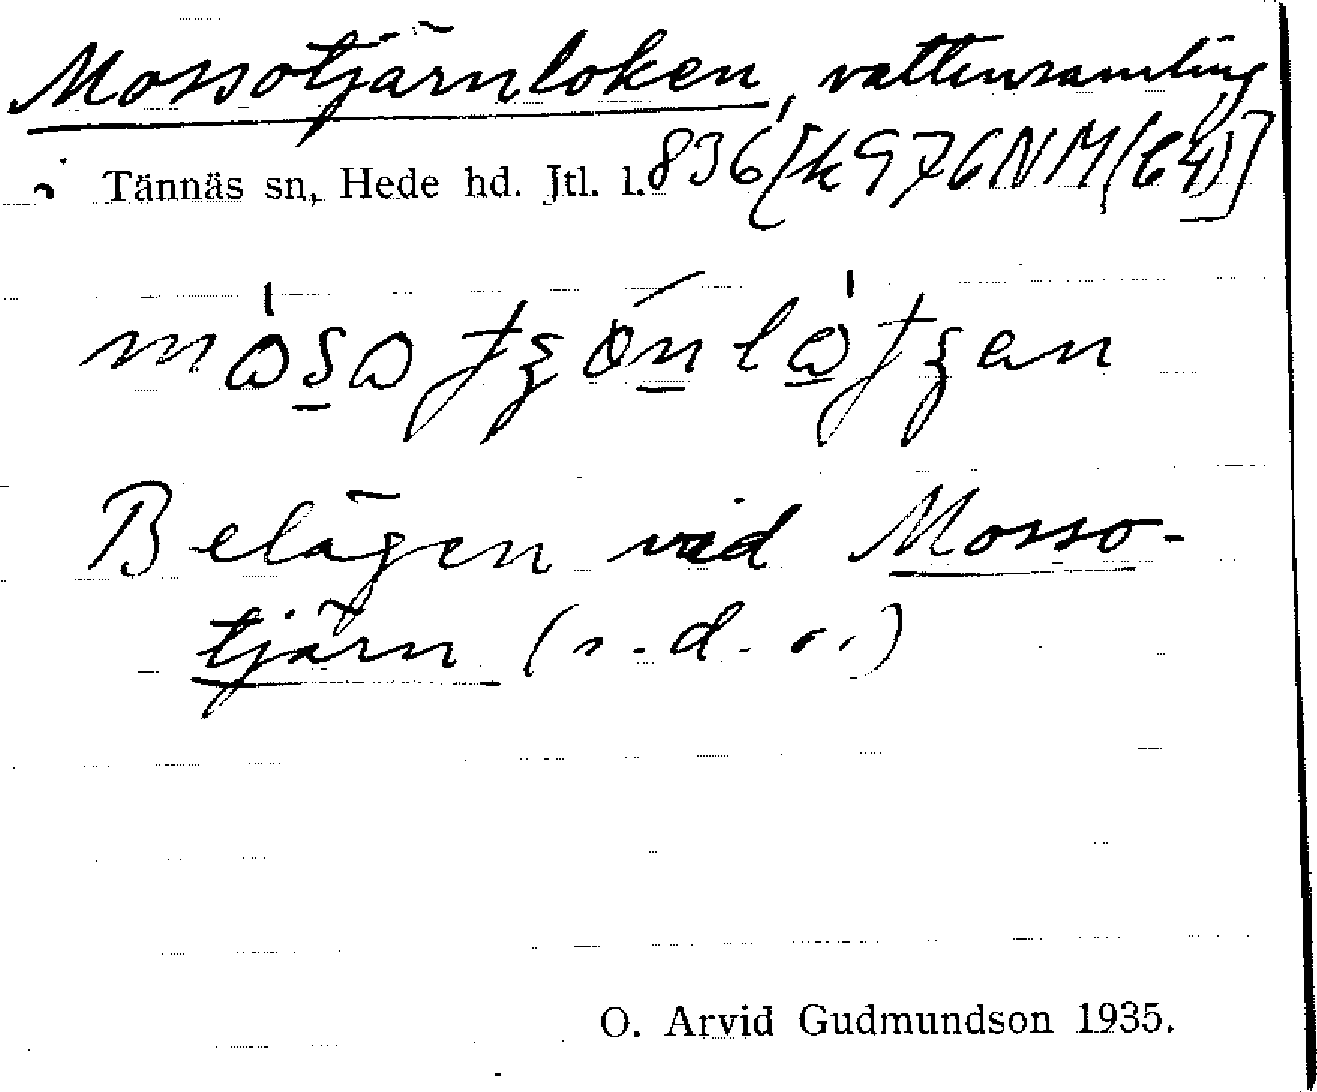 Mossotjärnloken, vattensamling
i Tännäs sn, Hede hd. Jtl. l. 836[k976NM(64)]
Belägen vid Mosso-
tjärn (s.d.o.)
O. Arvid Gudmundson 1935.